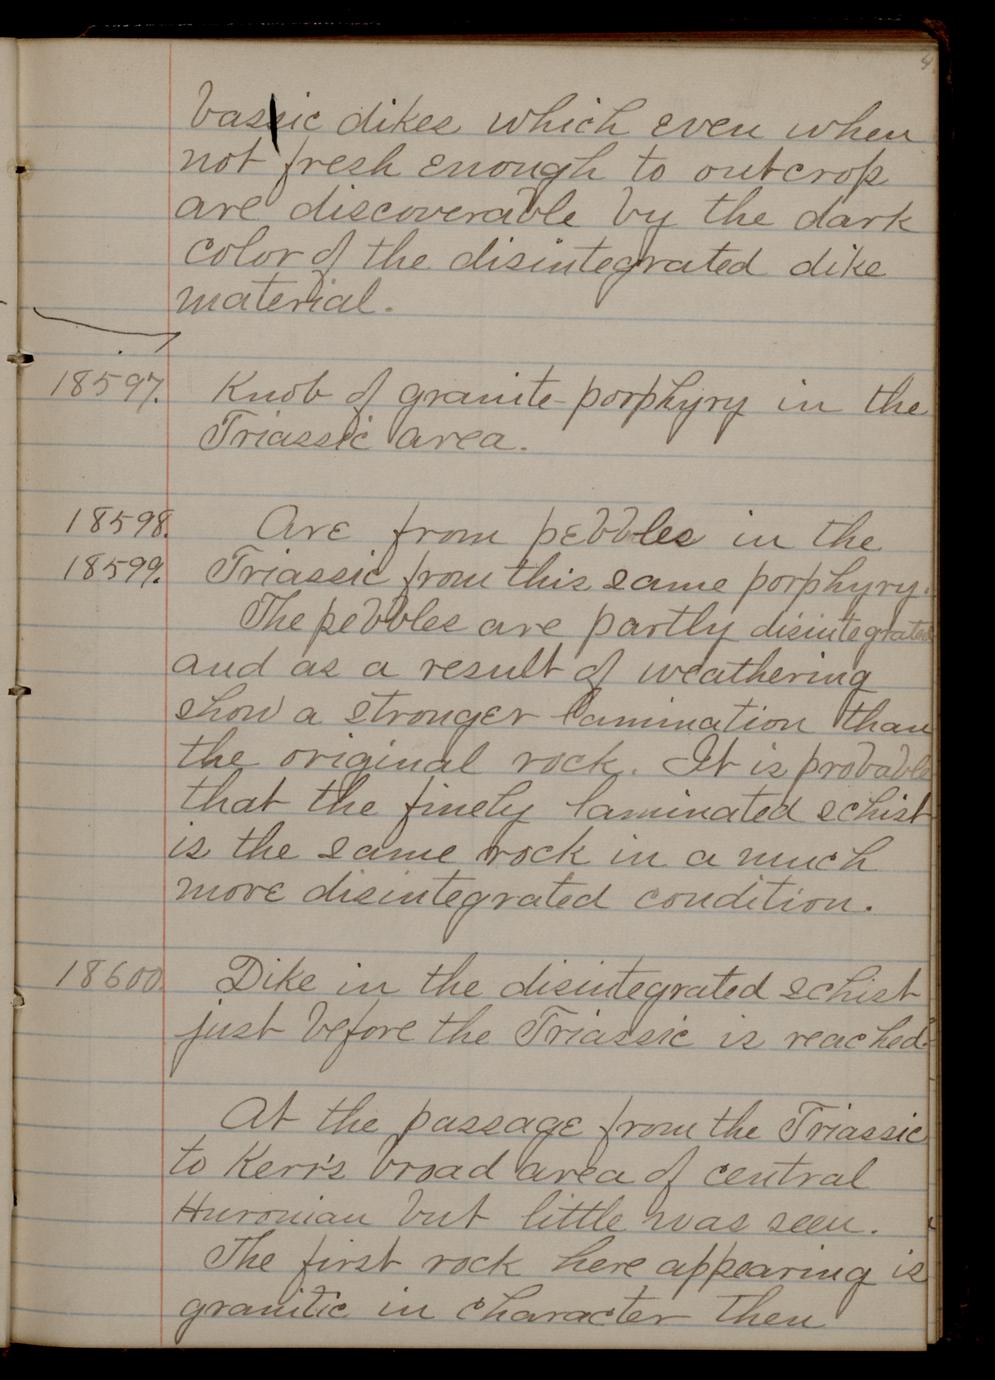 bassic dikes which even when
not fresh enough to outcrop
are discoverable by the dark
color of the disintegrated dike
material.
18597. Knob of granite-porphyry in the
Triassic area.
18598. Are from pebbles in the
18599. Triassic from this same porphyry.
The pebbles are partly disintegrated
and as a result of weathering
show a stronger lamination than
the original rock. It is probable
that the finely laminated schist
is the same rock in a much
more disintegrated condition.
18600 Dike in the disintegrated schist
just before the Triassic is reached.
At the passage from the Triassic
to Kerr's broad area of central
Huronian but little was seen.
The first rock here appearing is
granitic in character then